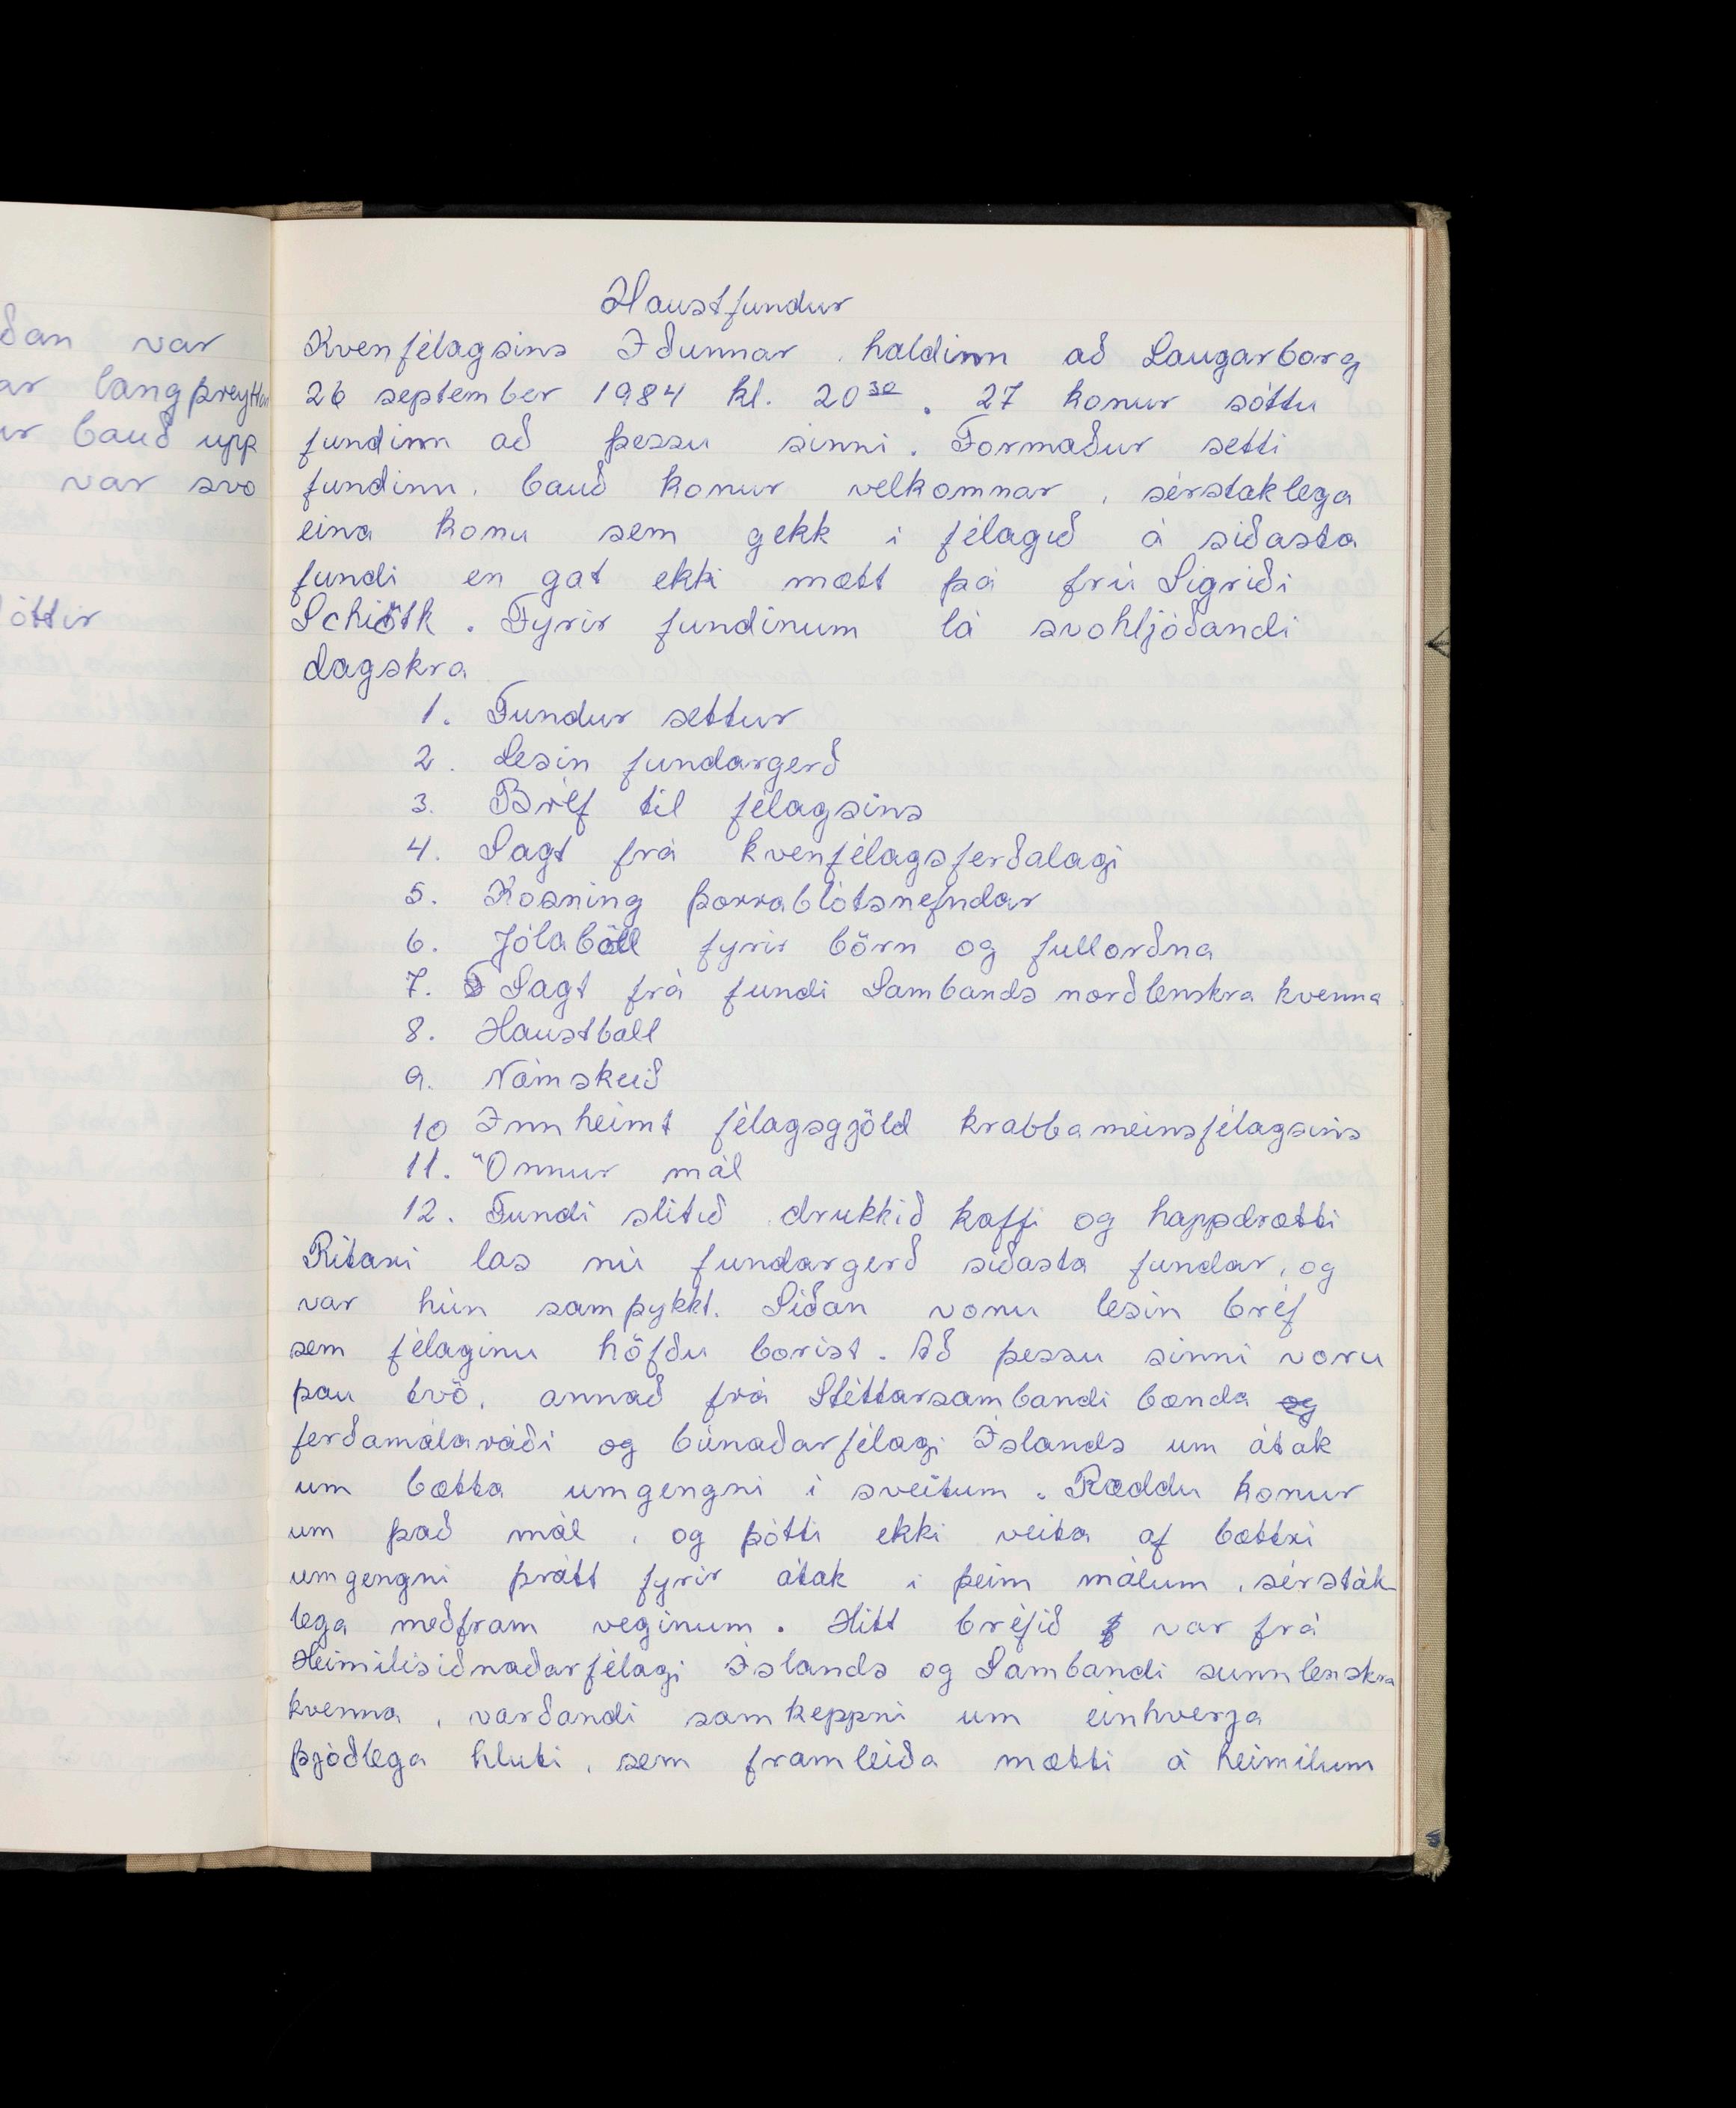 ðan var
ar langþreyttar
ur bauð upp
var svo
óttir
Haustfundur
Kvenfélagsins Iðunnar, haldinn að Laugarborg
26 september 1984 kl. 20³⁰. 27 konur sóttu
fundinn að þessu sinni. Formaður setti
fundinn, bauð konur velkomnar, sérstaklega
eina konu sem gekk í félagið á síðasta
fundi en gat ekki mætt þá frú Sigríði
Schiöth. Fyrir fundinum lá svohljóðandi
dagskrá
1. Fundur settur
2. Lesin fundargerð
3. Bréf til félagsins
4. Sagt frá kvenfélagsferðalagi
5. Kosning þorrablótsnefndar
6. Jólaböll fyrir börn og fullorðna
7. Sagt frá fundi Sambands norðlenskra kvenna
8. Haustball
9. Námskeið
10 Innheimt félagsgjöld krabbameinsfélagsins
11. Önnur mál
12. Fundi slitið drukkið kaffi og happdrætti
Ritari las nú fundargerð síðasta fundar, og
var hún samþykkt. Síðan voru lesin bréf
sem félaginu höfðu borist. Að þessu sinni voru
þau tvö, annað frá Stéttarsambandi bænda og
ferðamálaráði og búnaðarfélagi Íslands um átak
um bætta umgengni í sveitum. Ræddu konur
um það mál, og þótti ekki veita af bættri
umgengni þrátt fyrir átak í þeim málum, sérstak-
lega meðfram veginum. Hitt bréfið var frá
Heimilisiðnaðarfélagi Íslands og Sambandi sunnlenskra
kvenna, varðandi samkeppni um einhverja
þjóðlega hluti, sem framleiða mætti á heimilum